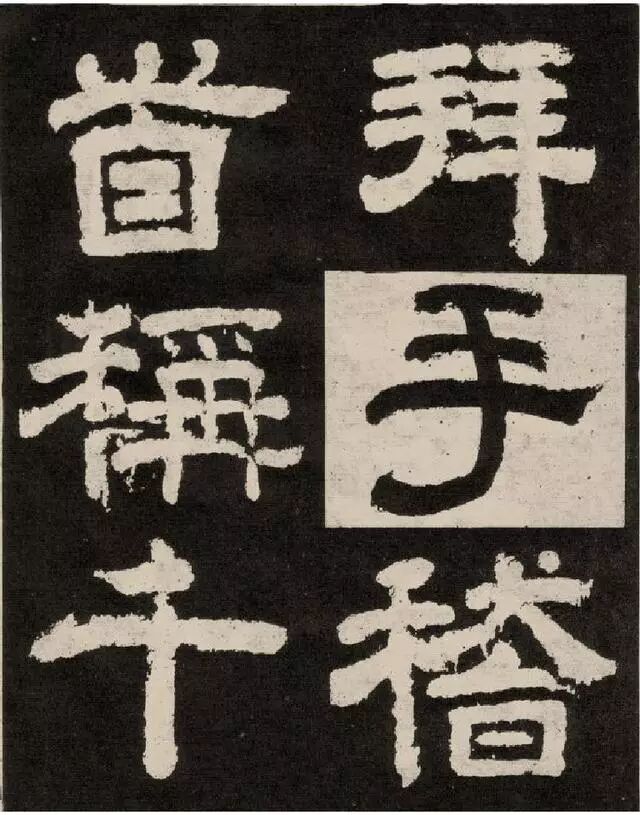 拜手稽
首稱千